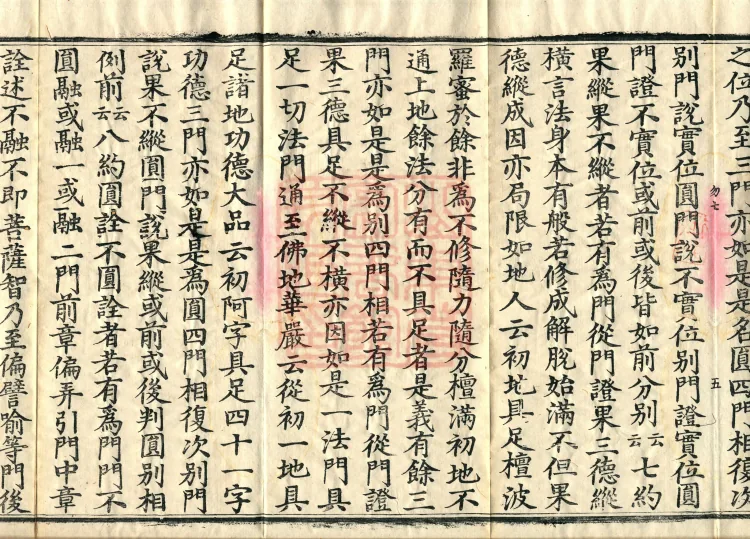 之位乃至三門亦如是是名圓四門相復次
別門說實位圓門說不實位別門證實位圓
勿七 五
門證不實位或前或後皆如前分別云云七約
果縱果不縱者若有為門從門證果三德縱
橫言法身本有般若修成解脫始滿不但果
德縱成因亦局限如地人云初地具足檀波
羅蜜於餘非為不修隨力隨分檀滿初地不
通上地餘法分有而不具足者是義有餘三
門亦如是是為別四門相若有為門從門證
果三德具足不縱不橫亦因如是一法門具
足一切法門通至佛地華嚴云從初一地具
足諸地功德大品云初阿字具足四十一字
功德三門亦如是是為圓四門相復次別門
說果不縱圓門說果縱或前或後判圓別相
例前云云八約圓詮不圓詮者若有為門門不
圓融或融一或融二門前章偏弄引門中章
詮述不融不即菩薩智乃至偏譬喻等門後